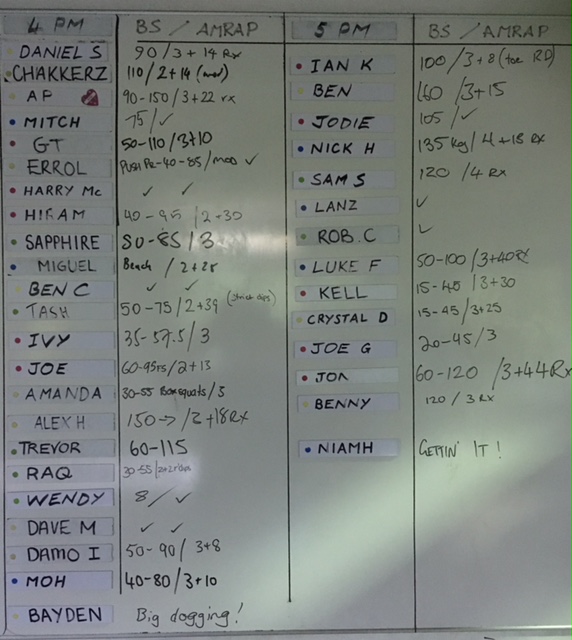 4 PM BS / AMRAP
DANIEL S 90/3+14 Rx
CHAKKERZ 110/2+14 (mod)
AP 90-150/3+22 rx
MITCH 75/✓
GT 50-110/3+10
ERROL 40-85/mod ✓
HARRY Mc ✓ ✓
HIRAM 40-95/2+30
SAPPHIRE 80-85/3
MIGUEL Beach/2+25
BEN C ✓ ✓
TASH 50-75/2+39
IVY 35-57.5/3
JOE 60-95rs/2+13
AMANDA 30-55 Box squats/3
ALEX H 150→/2+18Rx
TREVOR 60-115
RAQ 30-55
WENDY 8/✓
DAVE M ✓ ✓
DAMO I 50-90/3+8
MOH 40-80/3+10
BAYDEN Big dogging!
5 PM BS / AMRAP
IAN K 100/3+8 (toe RD)
BEN 160/3+15
JODIE 105/✓
NICK H 135kg/4+18 RX
SAM S 120/4 RX
LANZ ✓
ROB.C ✓
LUKE F 50-100/3+40RX
KELL 15-40/3+30
CRYSTAL D 15-45/3+25
JOE G 20-45/3
JON 60-120/3+44Rx
BENNY 120/3 RX
NIAMH GETTIN' IT!